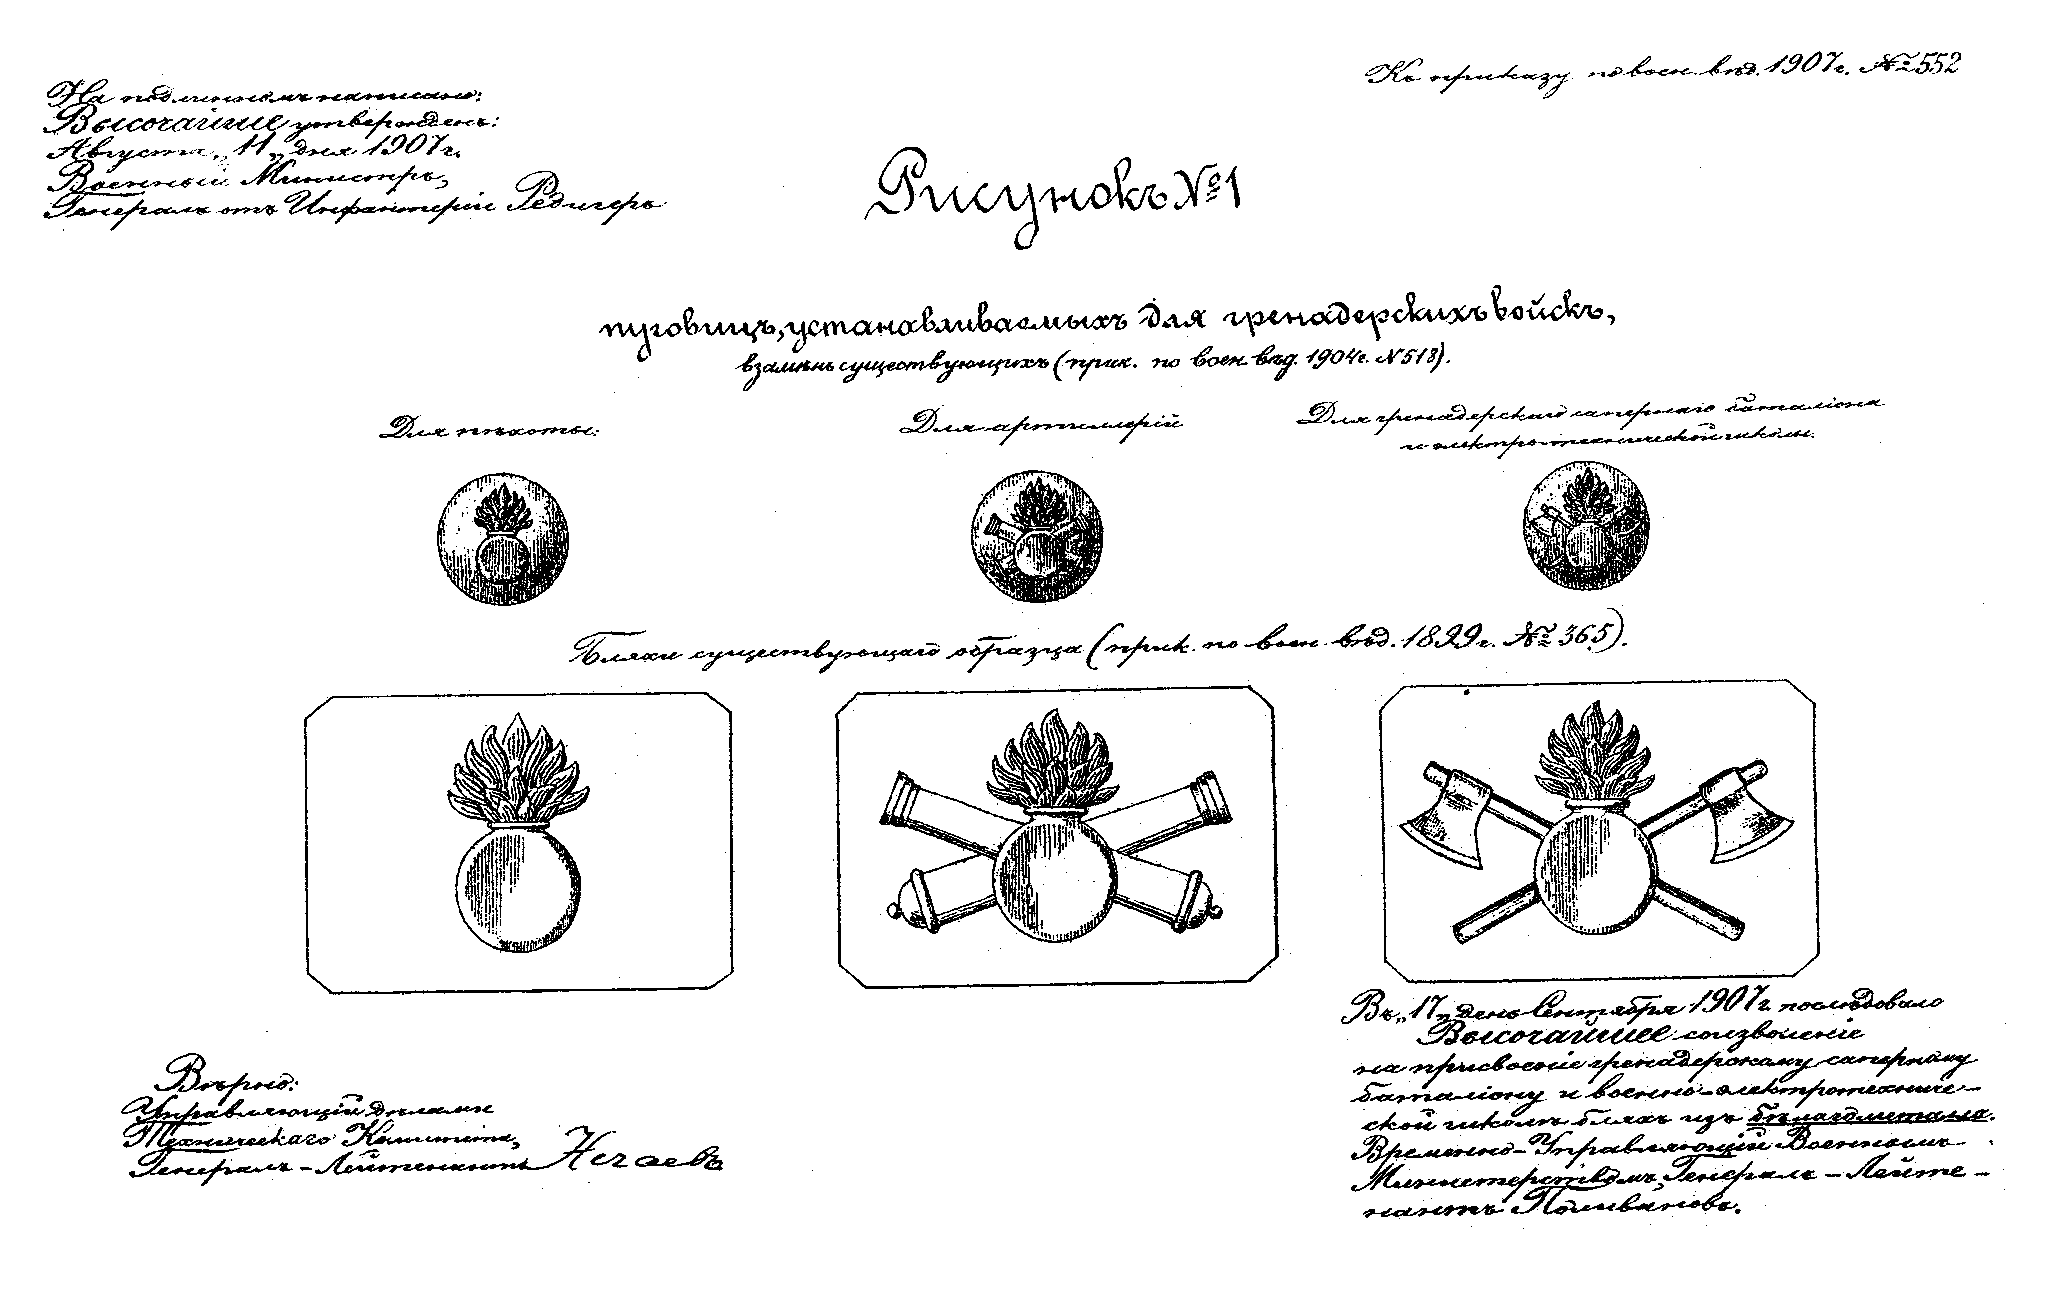 Къ приказу по воен. вѣд. 1907 г. № 552
На подлинномъ написано:
Высочайше утвержденъ:
Августа „11„ дня 1907 г.
Военный Министръ,
Генералъ отъ Инфантеріи Редигеръ
Рисунокъ № 1
пуговицъ, устанавливаемыхъ для гренадерскихъ войскъ,
взамѣнъ существующихъ (прик. по воен. вѣд. 1904 г. № 518).
Для пѣхоты:
Для артиллеріи
Для гренадерскаго сапернаго баталіона
и электро-технической школы.
Бляхи существующаго образца (прик. по воен. вѣд. 1899 г. № 365).
Въ „17„ день Сентября 1907 г. послѣдовало
Высочайшее соизволеніе
на присвоеніе гренадерскому саперному
баталіону и военно-электротехниче-
ской школѣ бляхъ изъ бѣлаго металла.
Временно-Управляющій Военнымъ
Министерствомъ, Генералъ-Лейте-
нантъ Поливановъ.
Вѣрно:
Управляющій дѣлами
Техническаго Комитета,
Генералъ-Лейтенантъ Нечаевъ